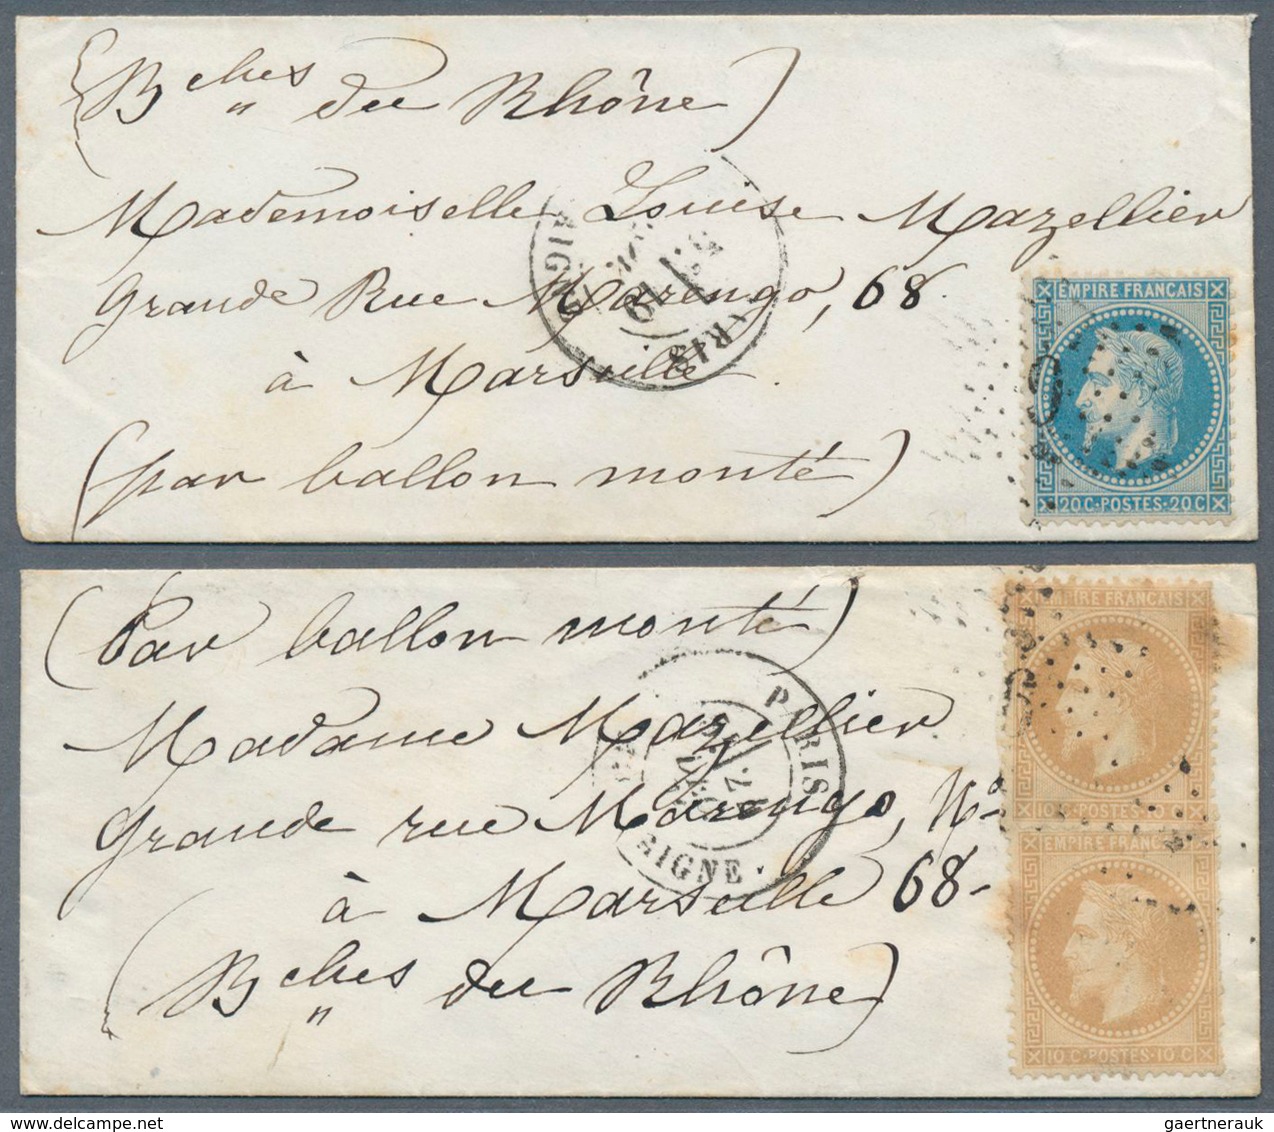 (Bches du Rhône)
Mademoiselle Louise Mazellier
Grande Rue Marengo, 68
à Marseille
(par ballon monté)
PARIS
EMPIRE FRANÇAIS
20 C · POSTES · 20 C
(Par ballon monté)
Madame Mazellier
Grande rue Marengo, No
à Marseille 68-
(Bches du Rhône)
PARIS
EMPIRE FRANÇAIS
10 C · POSTES · 10 C
EMPIRE FRANÇAIS
10 C · POSTES · 10 C
gaertnerauk @ delcampe.net